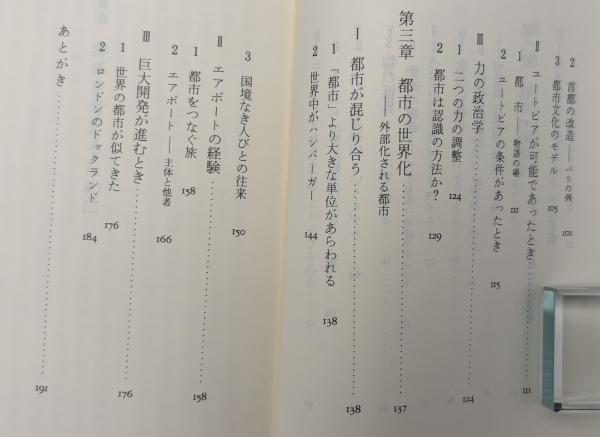 2 首都の改造——パリの例 101
3 都市文化のモデル 105
II ユートピアが可能であったとき 111
1 都市——物語の場 111
2 ユートピアの条件があったとき 115
III 力の政治学 124
1 二つの力の調整 124
2 都市は認識の方法か? 129
第三章 都市の世界化 137
——外部化される都市
I 都市が混じり合う 138
1 「都市」より大きな単位があらわれる 138
2 世界中がハンバーガー 144
3 国境なき人びとの往来 150
II エアポートの経験 158
1 都市をつなぐ旅 158
2 エアポート——主体と他者 166
III 巨大開発が進むとき 176
1 世界の都市が似てきた 176
2 ロンドンのドックランド 184
あとがき 191